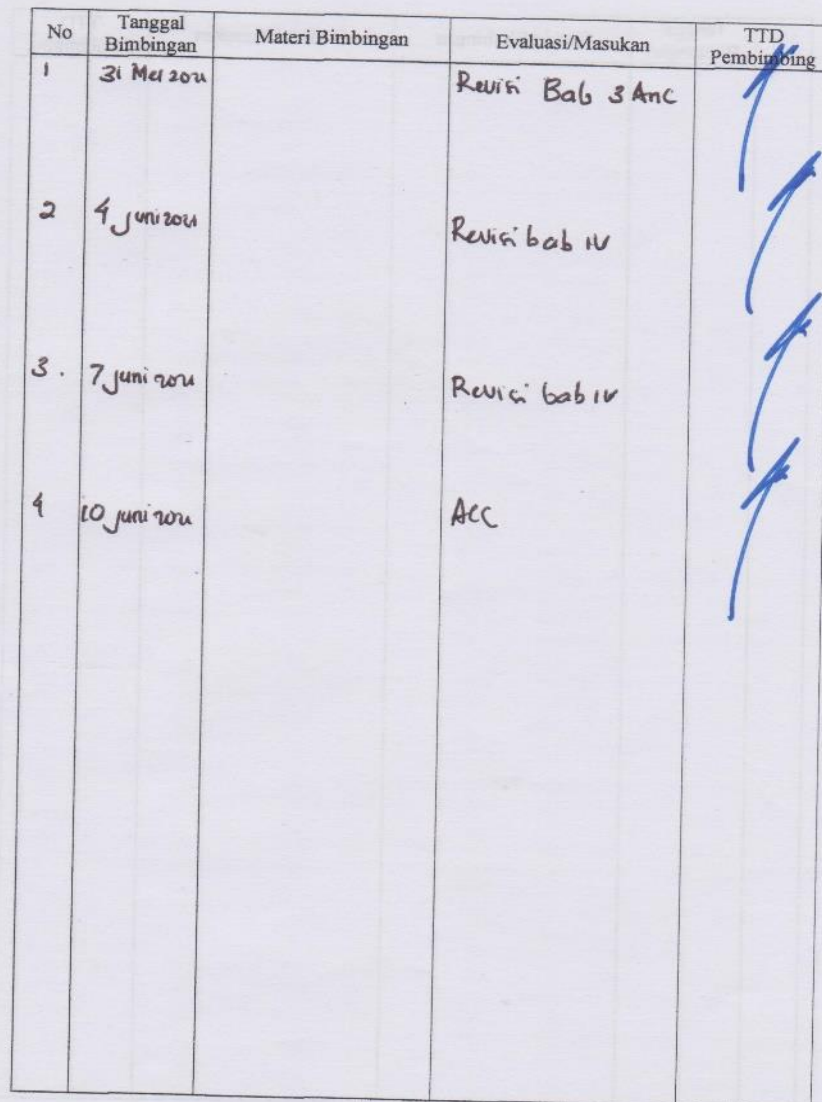 No Tanggal Bimbingan Materi Bimbingan Evaluasi/Masukan TTD Pembimbing
1 31 Mei 2021 Revisi Bab 3 Anc
2 4 juni 2021 Revisi bab IV
3. 7 juni 2021 Revisi bab IV
4 10 juni 2021 Acc